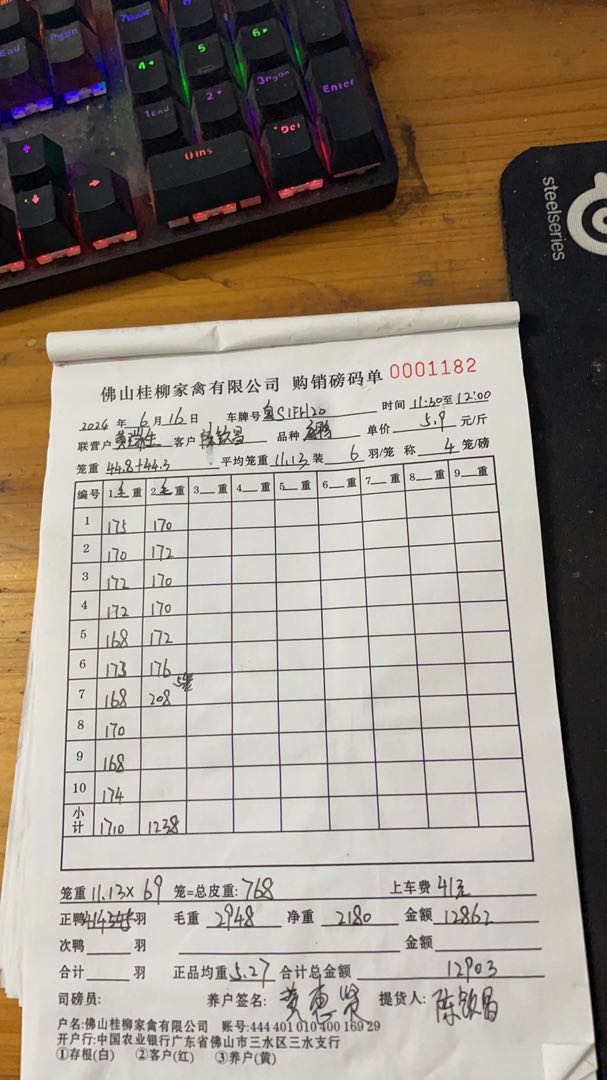 End
Pgon
5
6
4
1End
2
3Pgon
Enter
0Ins
Del
steelseries
佛山桂柳家禽有限公司 购销磅码单 0001182
2024 年 6 月 16 日 车牌号 时间 11:30至12:00
联营户 客户 陈钦昌 品种 单价 5.9 元/斤
笼重 44.8+44.3 平均笼重 11.13 装 6 羽/笼 称 4 笼/磅
编号 1 毛 重 2 毛 重 3 重 4 重 5 重 6 重 7 重 8 重 9 重
1 175 170
2 170 172
3 172 170
4 172 170
5 168 172
6 173 176
7 168 208 5笼
8 170
9 168
10 174
小计 1710 1238
笼重 11.13 × 69 笼=总皮重: 768 上车费 41元
正鸭 羽 毛重 2948 净重 2180 金额 12862
次鸭 羽 金额
合计 羽 正品均重 5.27 合计总金额 12903
司磅员: 养户签名: 黄惠贤 提货人: 陈钦昌
户名:佛山桂柳家禽有限公司 账号:444 401 010 400 169 29
开户行:中国农业银行广东省佛山市三水区三水支行
①存根(白) ②客户(红) ③养户(黄)